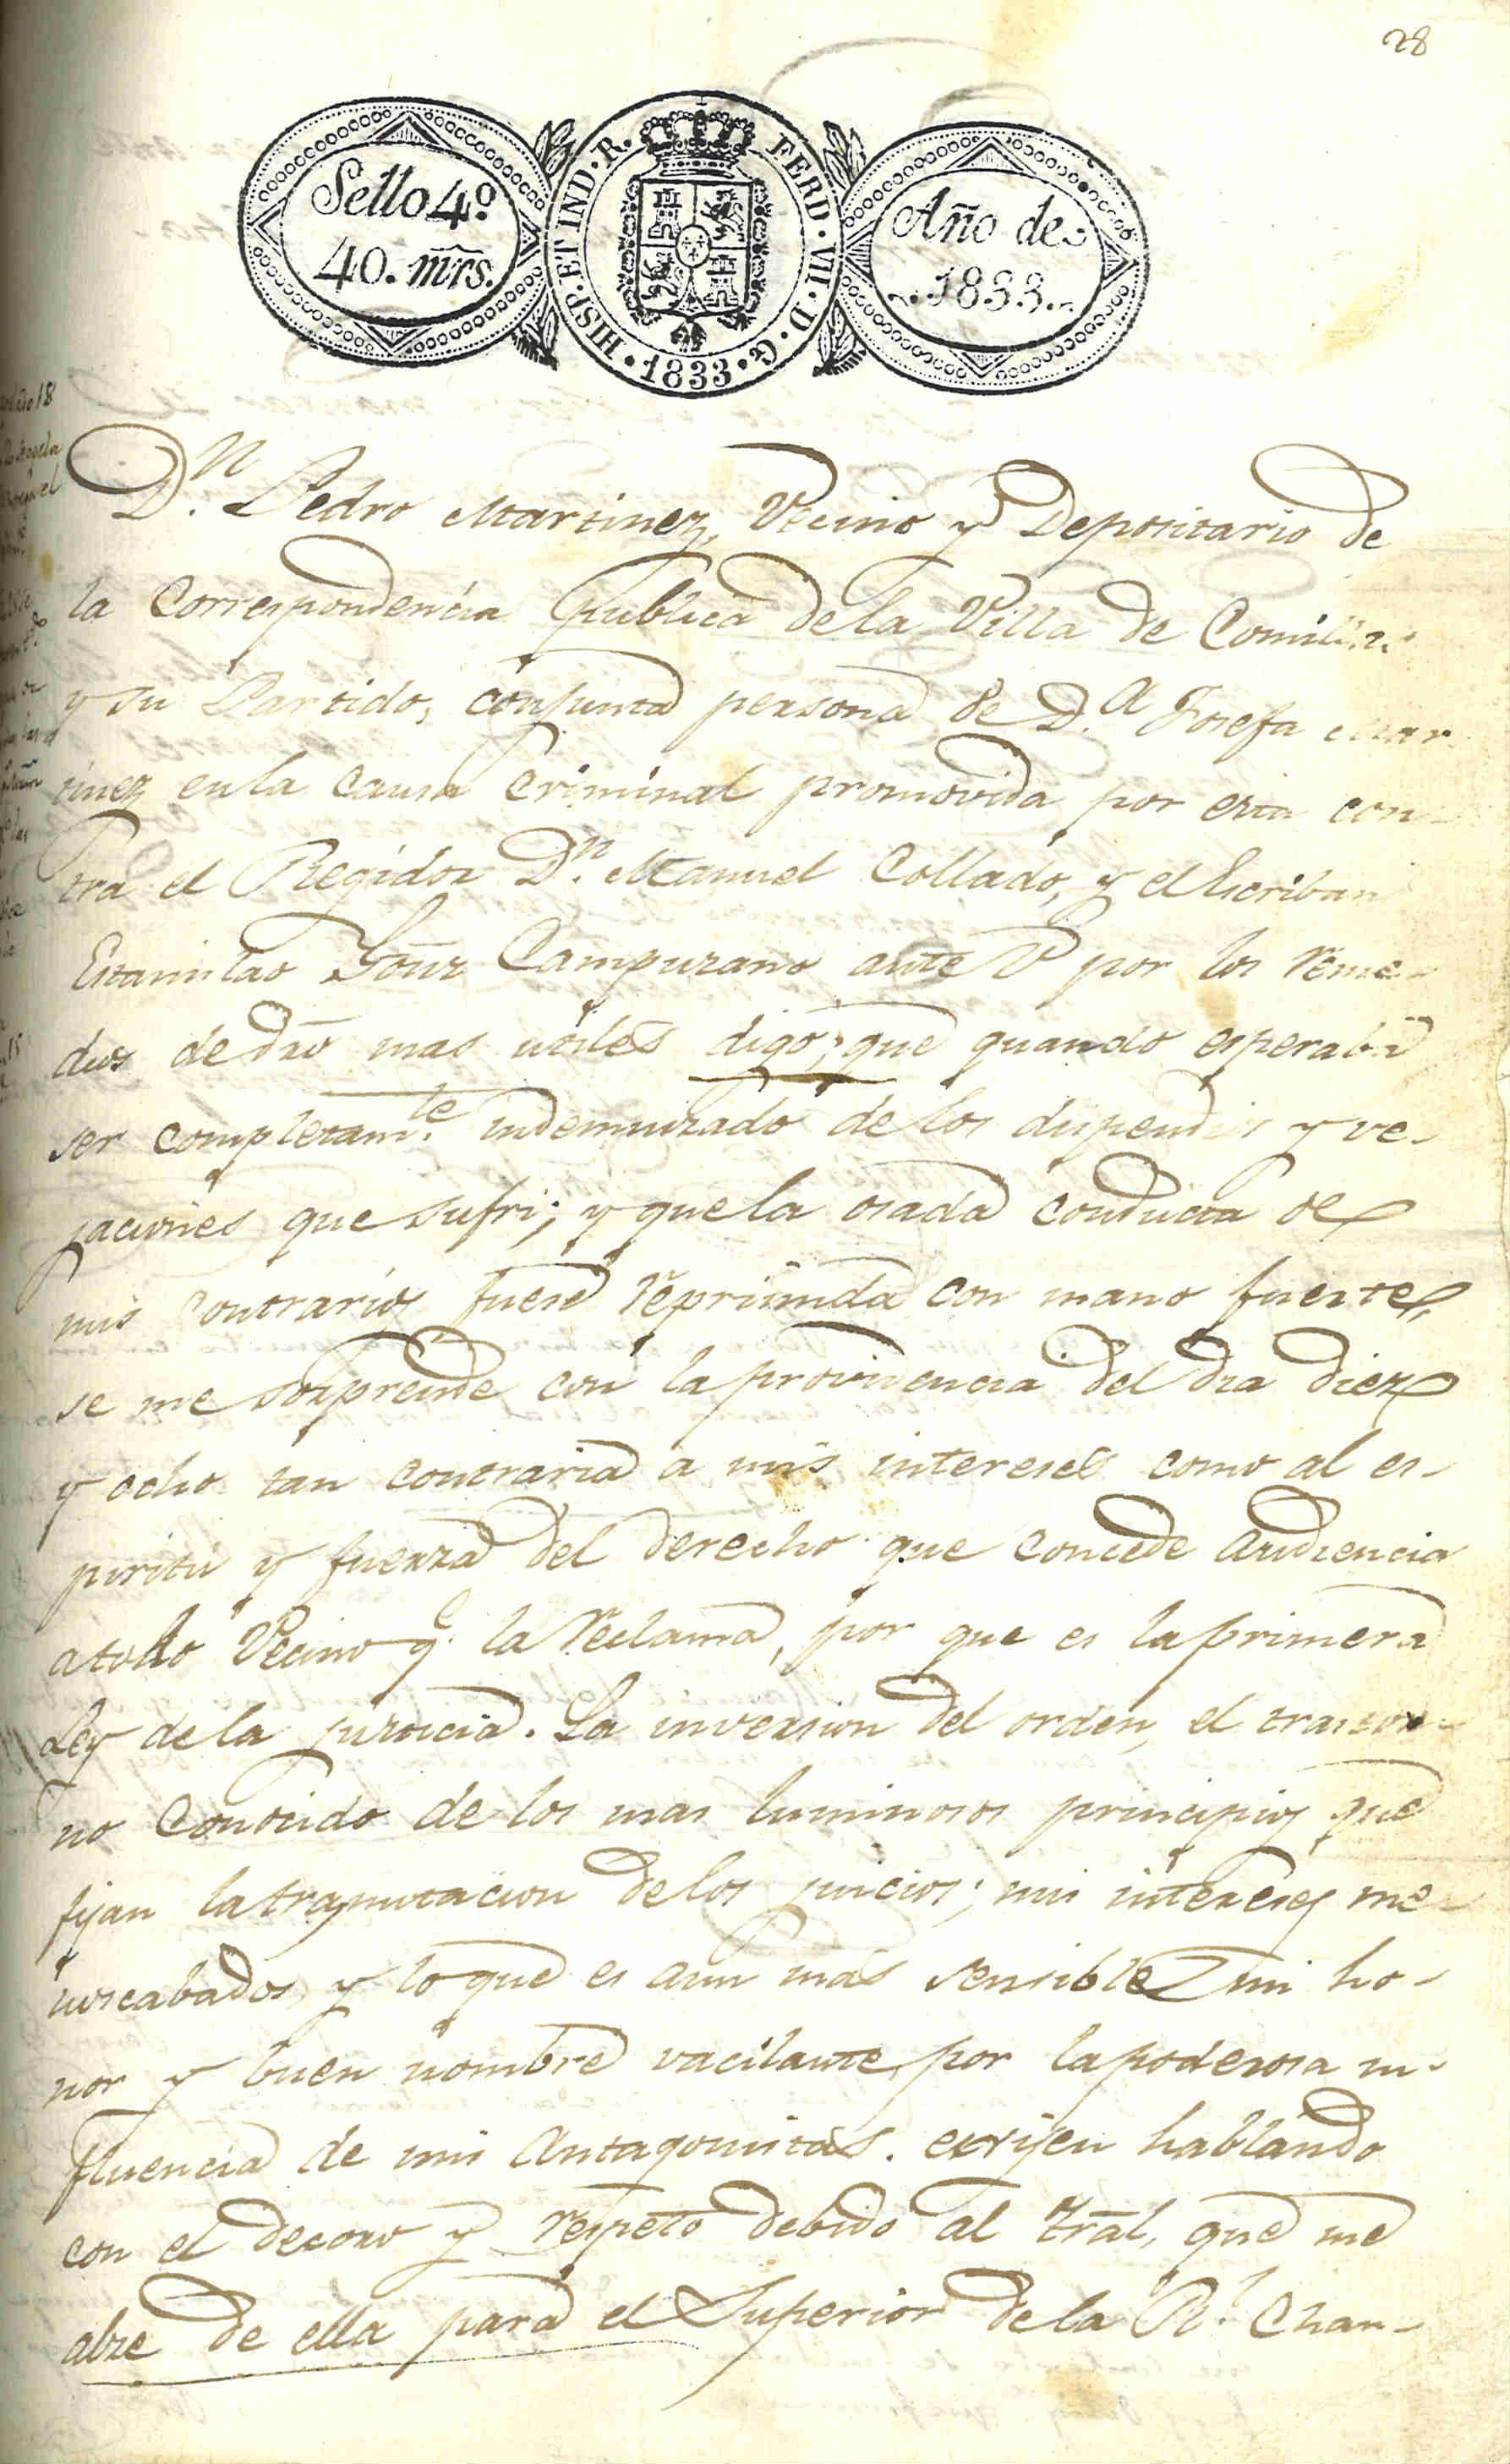 28
Sello 4º
40. mrs.
HISP. ET IND. R. FERD. VII. D. G. 1833.
Año de
1833.
D.n Pedro Martinez, Vecino y Depositario de
la Correspondencia publica de la Villa de Comillas
y su Partido, conjunta persona de D.a Josefa Mar
tinez en la causa criminal promovida por esta con-
tra el Regidor D.n Manuel Collado, y el Escribano
Estanislao Gonz Campuzano ante V por los reme-
dios de dro mas utiles digo; que quando esperaba
ser completam.te indemnizado de los dispendios y ve-
jaciones que sufri; y que la osada conducta de
mis contrarios fuese reprimida con mano fuerte,
se me sorprende con la providencia del dia diez
y ocho tan contraria a mis intereses como al es-
piritu y fuerza del derecho que concede audiencia
a todo Vecino q.e la reclama, por que es la primera
Ley de la justicia. La inversion del orden, el trastor-
no conocido de los mas luminosos principios que
fijan la tramitacion de los juicios; mis intereses me-
noscabados, y lo que es aun mas sensible mi ho-
nor y buen nombre vacilante, por la poderosa in-
fluencia de mis Antagonistas. exijen hablando
con el decoro y respeto debido al tral, que me
alze de ella para el Superior de la R.l Chan-